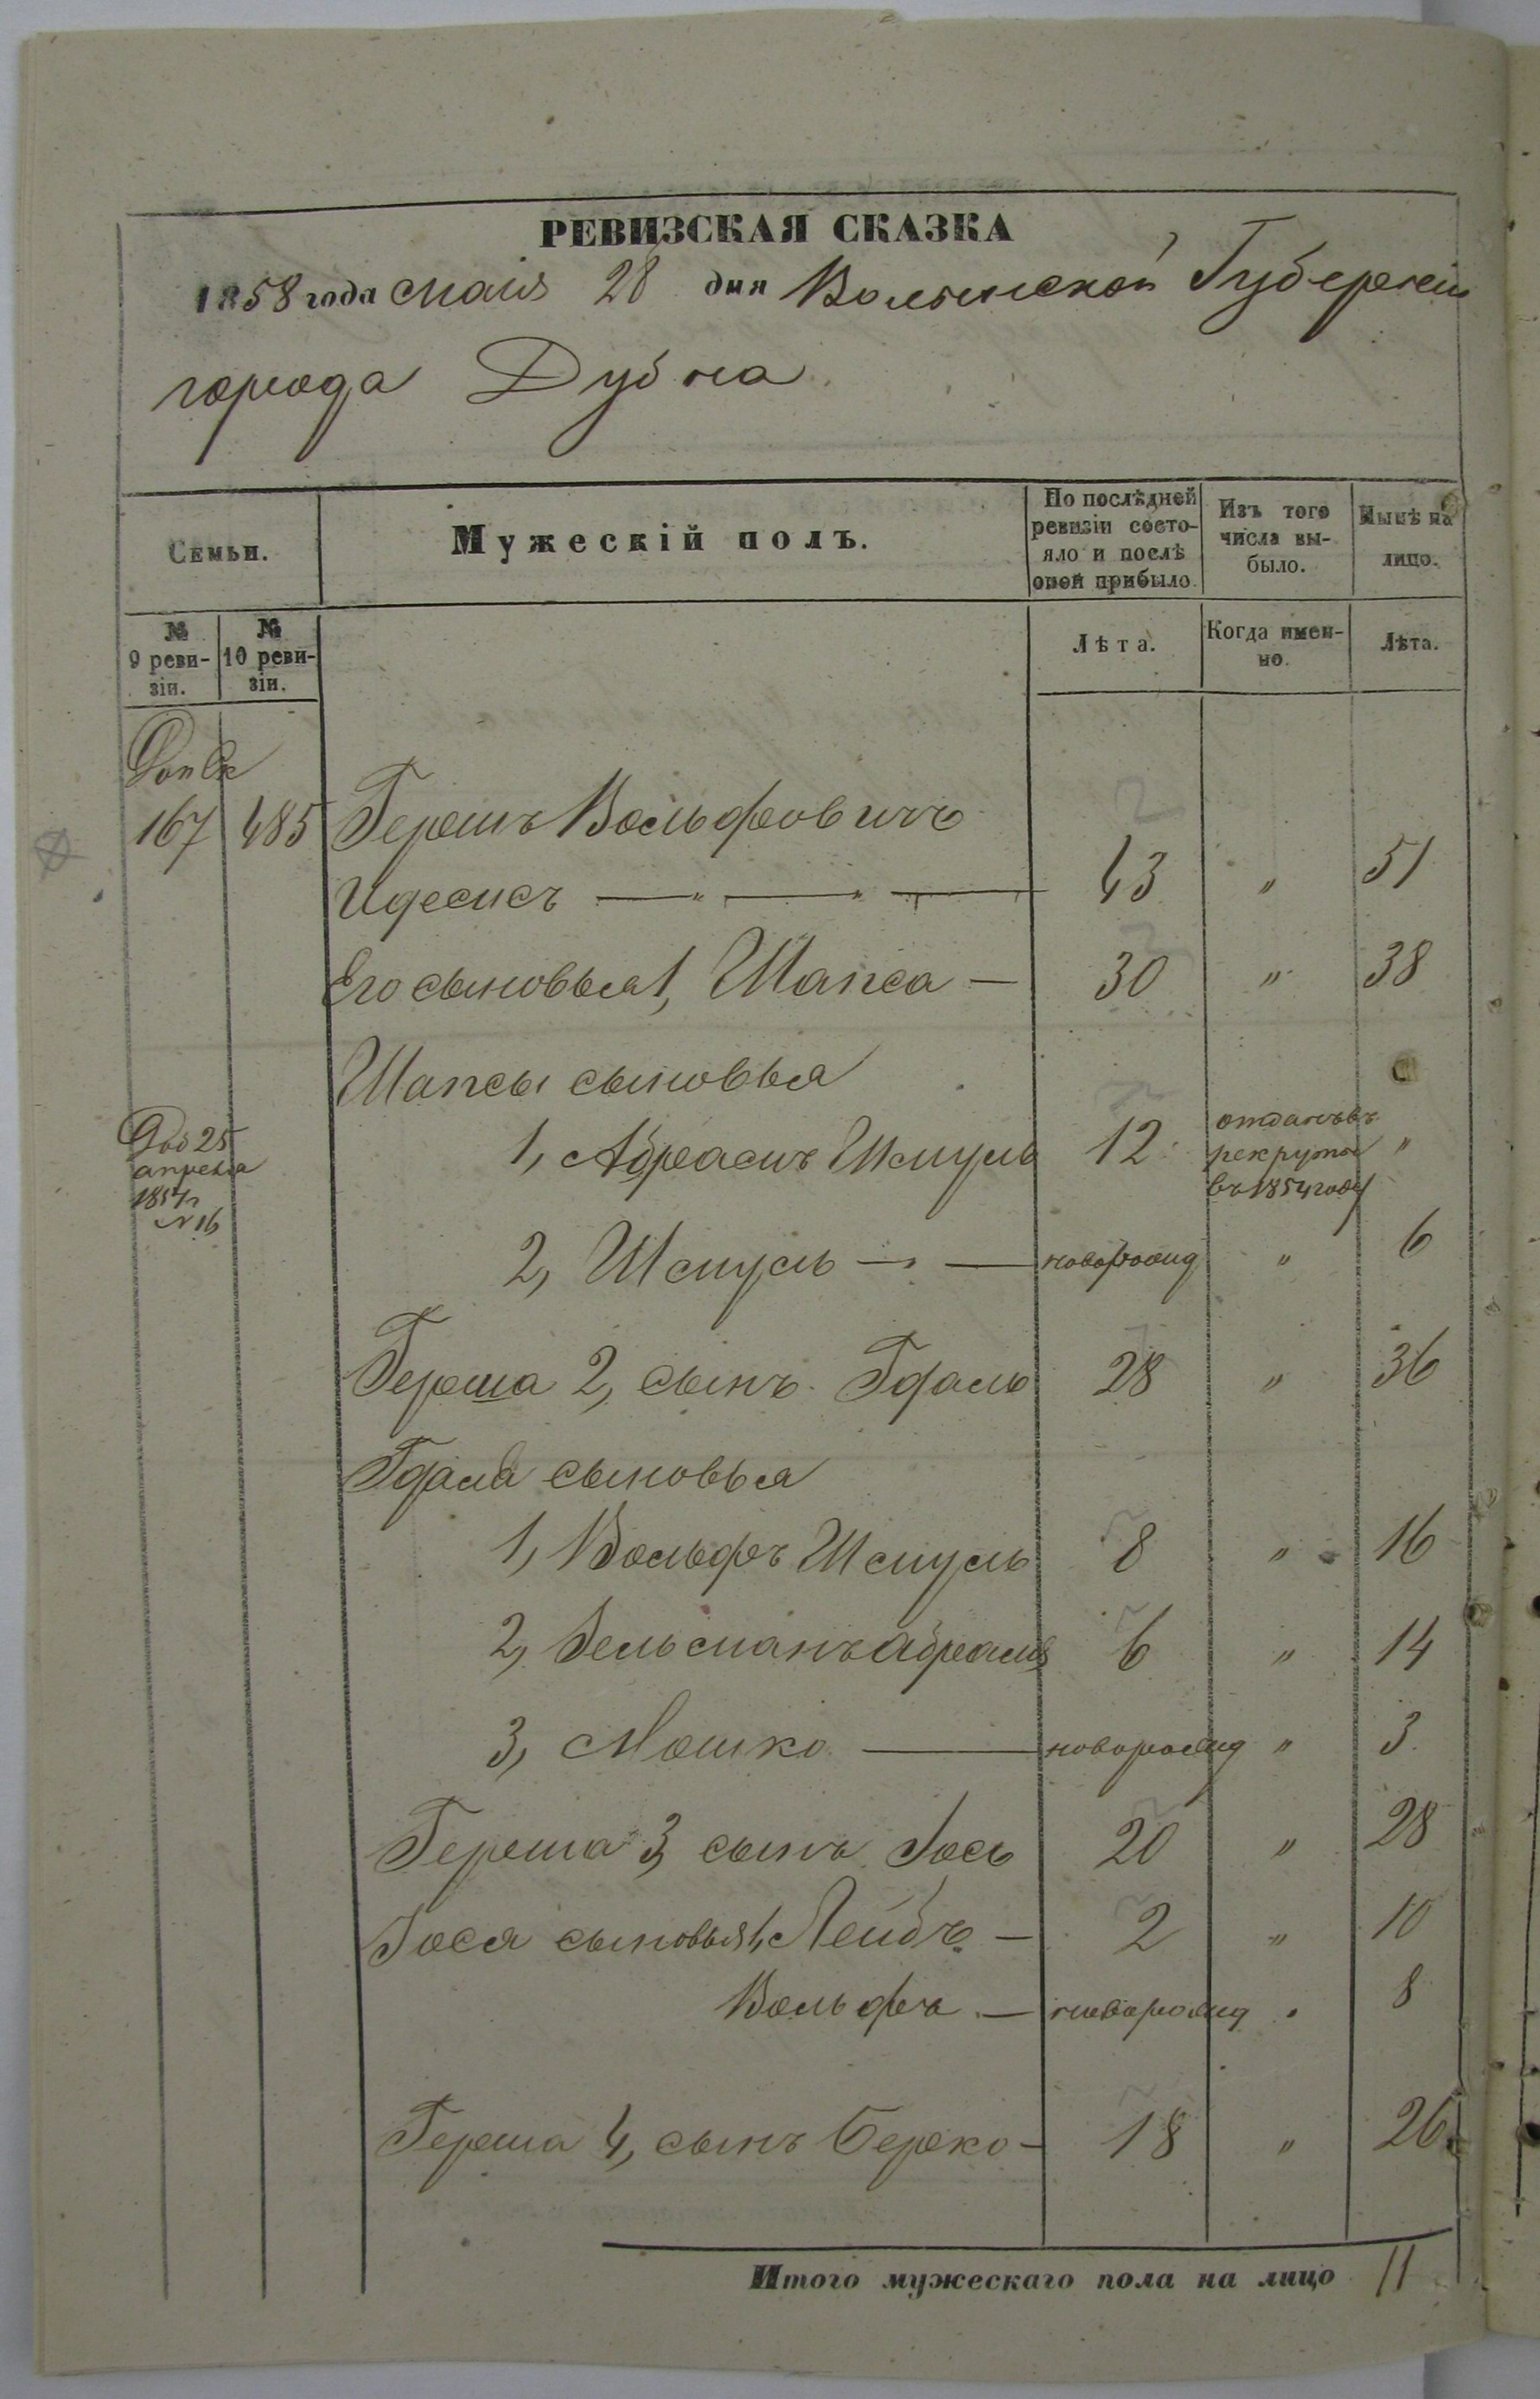 РЕВИЗСКАЯ СКАЗКА
1858 года маія 28 дня Волынской Губерніи
города Дубна
Семьи.
Мужескій полъ.
По послѣдней ревизіи состо-
яло и послѣ
оной прибыло.
Изъ того
числа вы-
было.
Нынѣ на
лицо.
№
9 реви-
зіи.
№
10 реви-
зіи.
Лѣта.
Когда имен-
но.
Лѣта.
167 485 Гершъ Вольфовичъ
Идесисъ — " — " — 43 " 51
Его сыновья 1, Шапса — 30 " 38
Шапсы сыновья
25
апреля
1857г
№ 16
1, Абрамъ Шмуль 12 отданъ въ
рекруты "
въ 1854 году
2, Шмуль — — новорожд " 6
Герша 2, сынъ Гдаль 28 " 36
Гдаля сыновья
1, Вольфъ Шмуль 8 " 16
2, Зельманъ Абрамъ 6 " 14
3, Мошко — новорожд " 3
Герша 3, сынъ Іось 20 " 28
Іося сыновья 1, Лейбъ — 2 " 10
Вольфъ — новорожд " 8
Герша 4, сынъ Берко — 18 " 26
Итого мужескаго пола на лицо 11